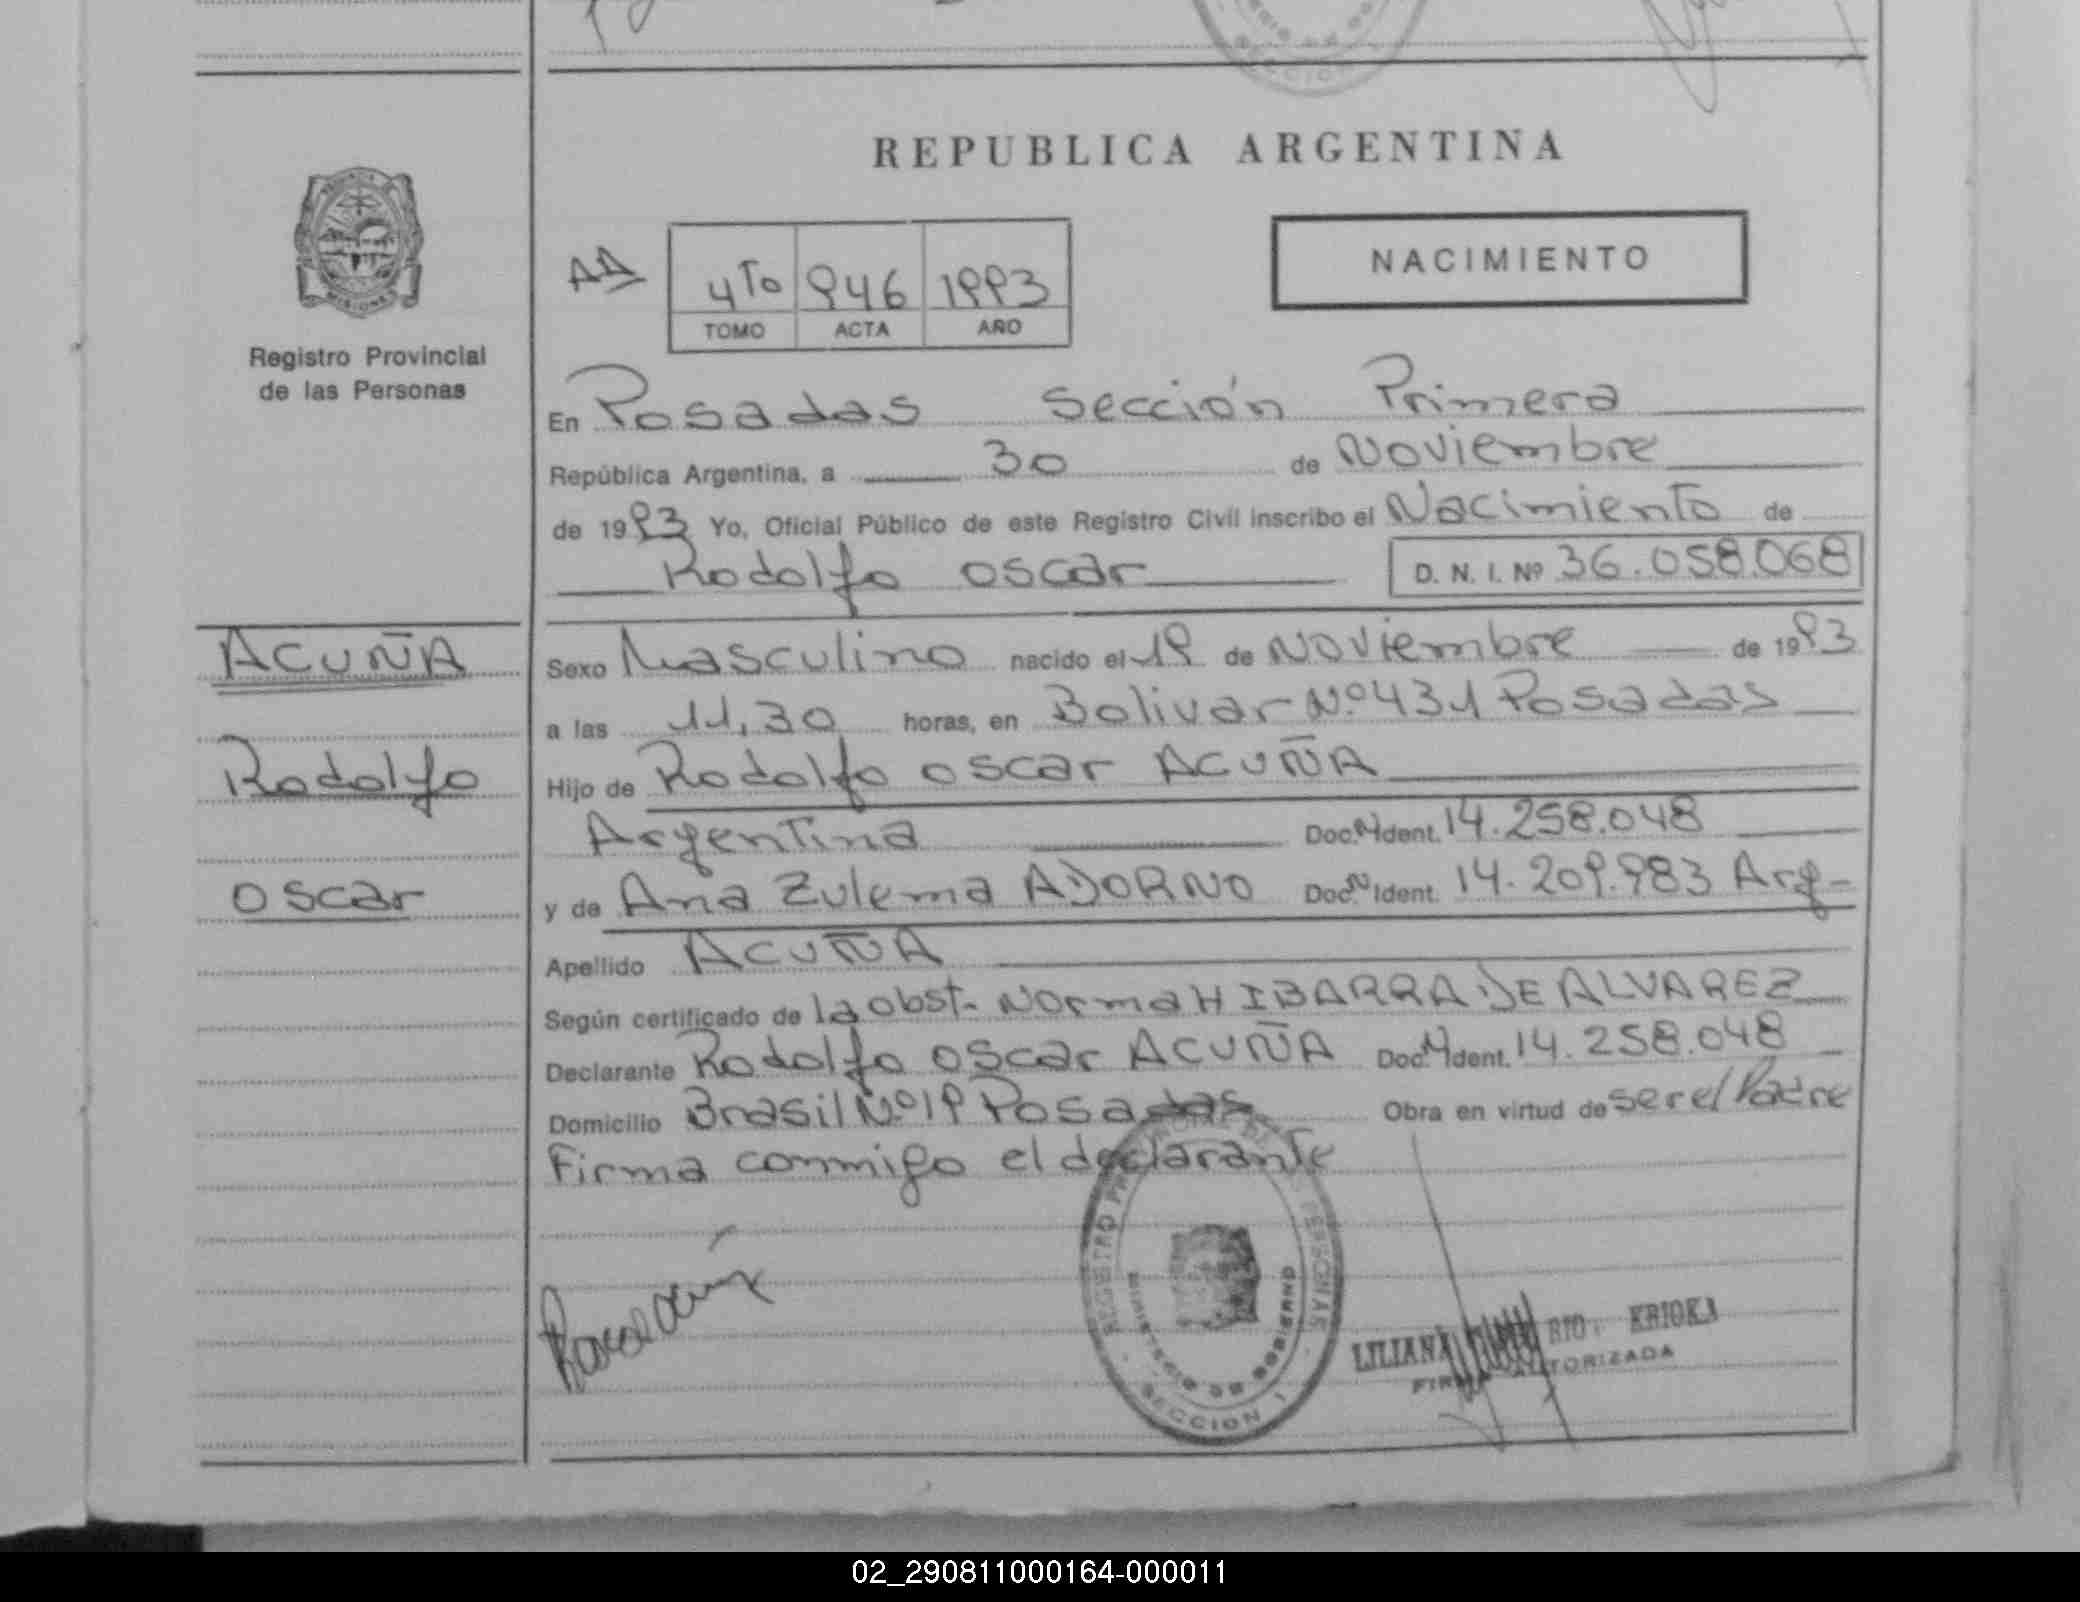 REPUBLICA ARGENTINA
NACIMIENTO
4To 946 1993
TOMO ACTA AÑO
MISIONES
Registro Provincial
de las Personas
En Posadas Sección Primera
República Argentina, a 30 de Noviembre
de 1993 Yo, Oficial Público de este Registro Civil inscribo el Nacimiento de
Rodolfo Oscar D. N. I. Nº 36.058.068
ACUÑA
Rodolfo
Oscar
Sexo Masculino nacido el 19 de Noviembre de 1993
a las 11,30 horas, en Bolivar Nº 431 Posadas
Hijo de Rodolfo Oscar ACUÑA
Argentina Doc. N Ident. 14.258.048
y de Ana Zulema ADORNO Doc. N Ident. 14.209.983 Arg-
Apellido ACUÑA
Según certificado de la obst. Norma H IBARRA DE ALVAREZ
Declarante Rodolfo Oscar ACUÑA Doc. N Ident. 14.258.048
Domicilio Brasil Nº 19 Posadas Obra en virtud de ser el Padre
Firma conmigo el declarante
REGISTRO PROVINCIAL DE LAS PERSONAS
MINISTERIO DE GOBIERNO
SECCION 1
LILIANA KRIOKA
FIRMA AUTORIZADA
02_290811000164-000011